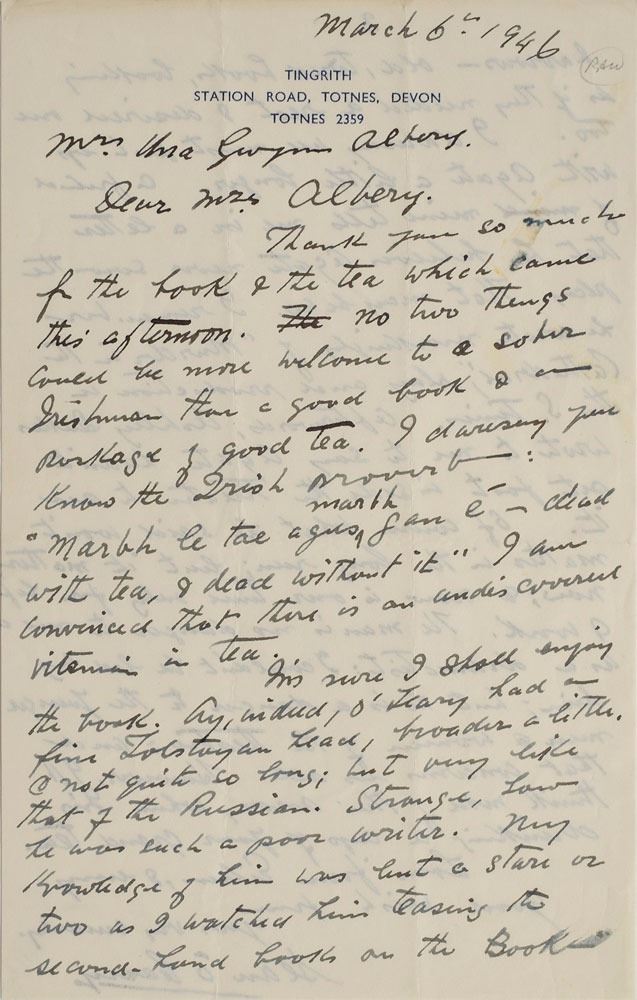 March 6th 1946
TINGRITH
STATION ROAD, TOTNES, DEVON
TOTNES 2359
Mrs Una Gwynn Albery.
Dear Mrs Albery.
Thank you so much
for the book & the tea which came
this afternoon. The no two things
could be more welcome to a sober
Irishman than a good book & a
package of good tea. I daresay you
know the Irish proverb — :
marbh
"Marbh le tae agus gan é — dead
with tea, & dead without it" I am
convinced that there is an undiscovered
vitamin in tea.
I'm sure I shall enjoy
the book. Ay, indeed, O'Leary had a
fine Tolstoyan head, broader a little.
& not quite so long; but very like
that of the Russian. Strange, how
he was such a poor writer. My
knowledge of him was but a stare or
two as I watched him teasing the
second-hand books on the Book